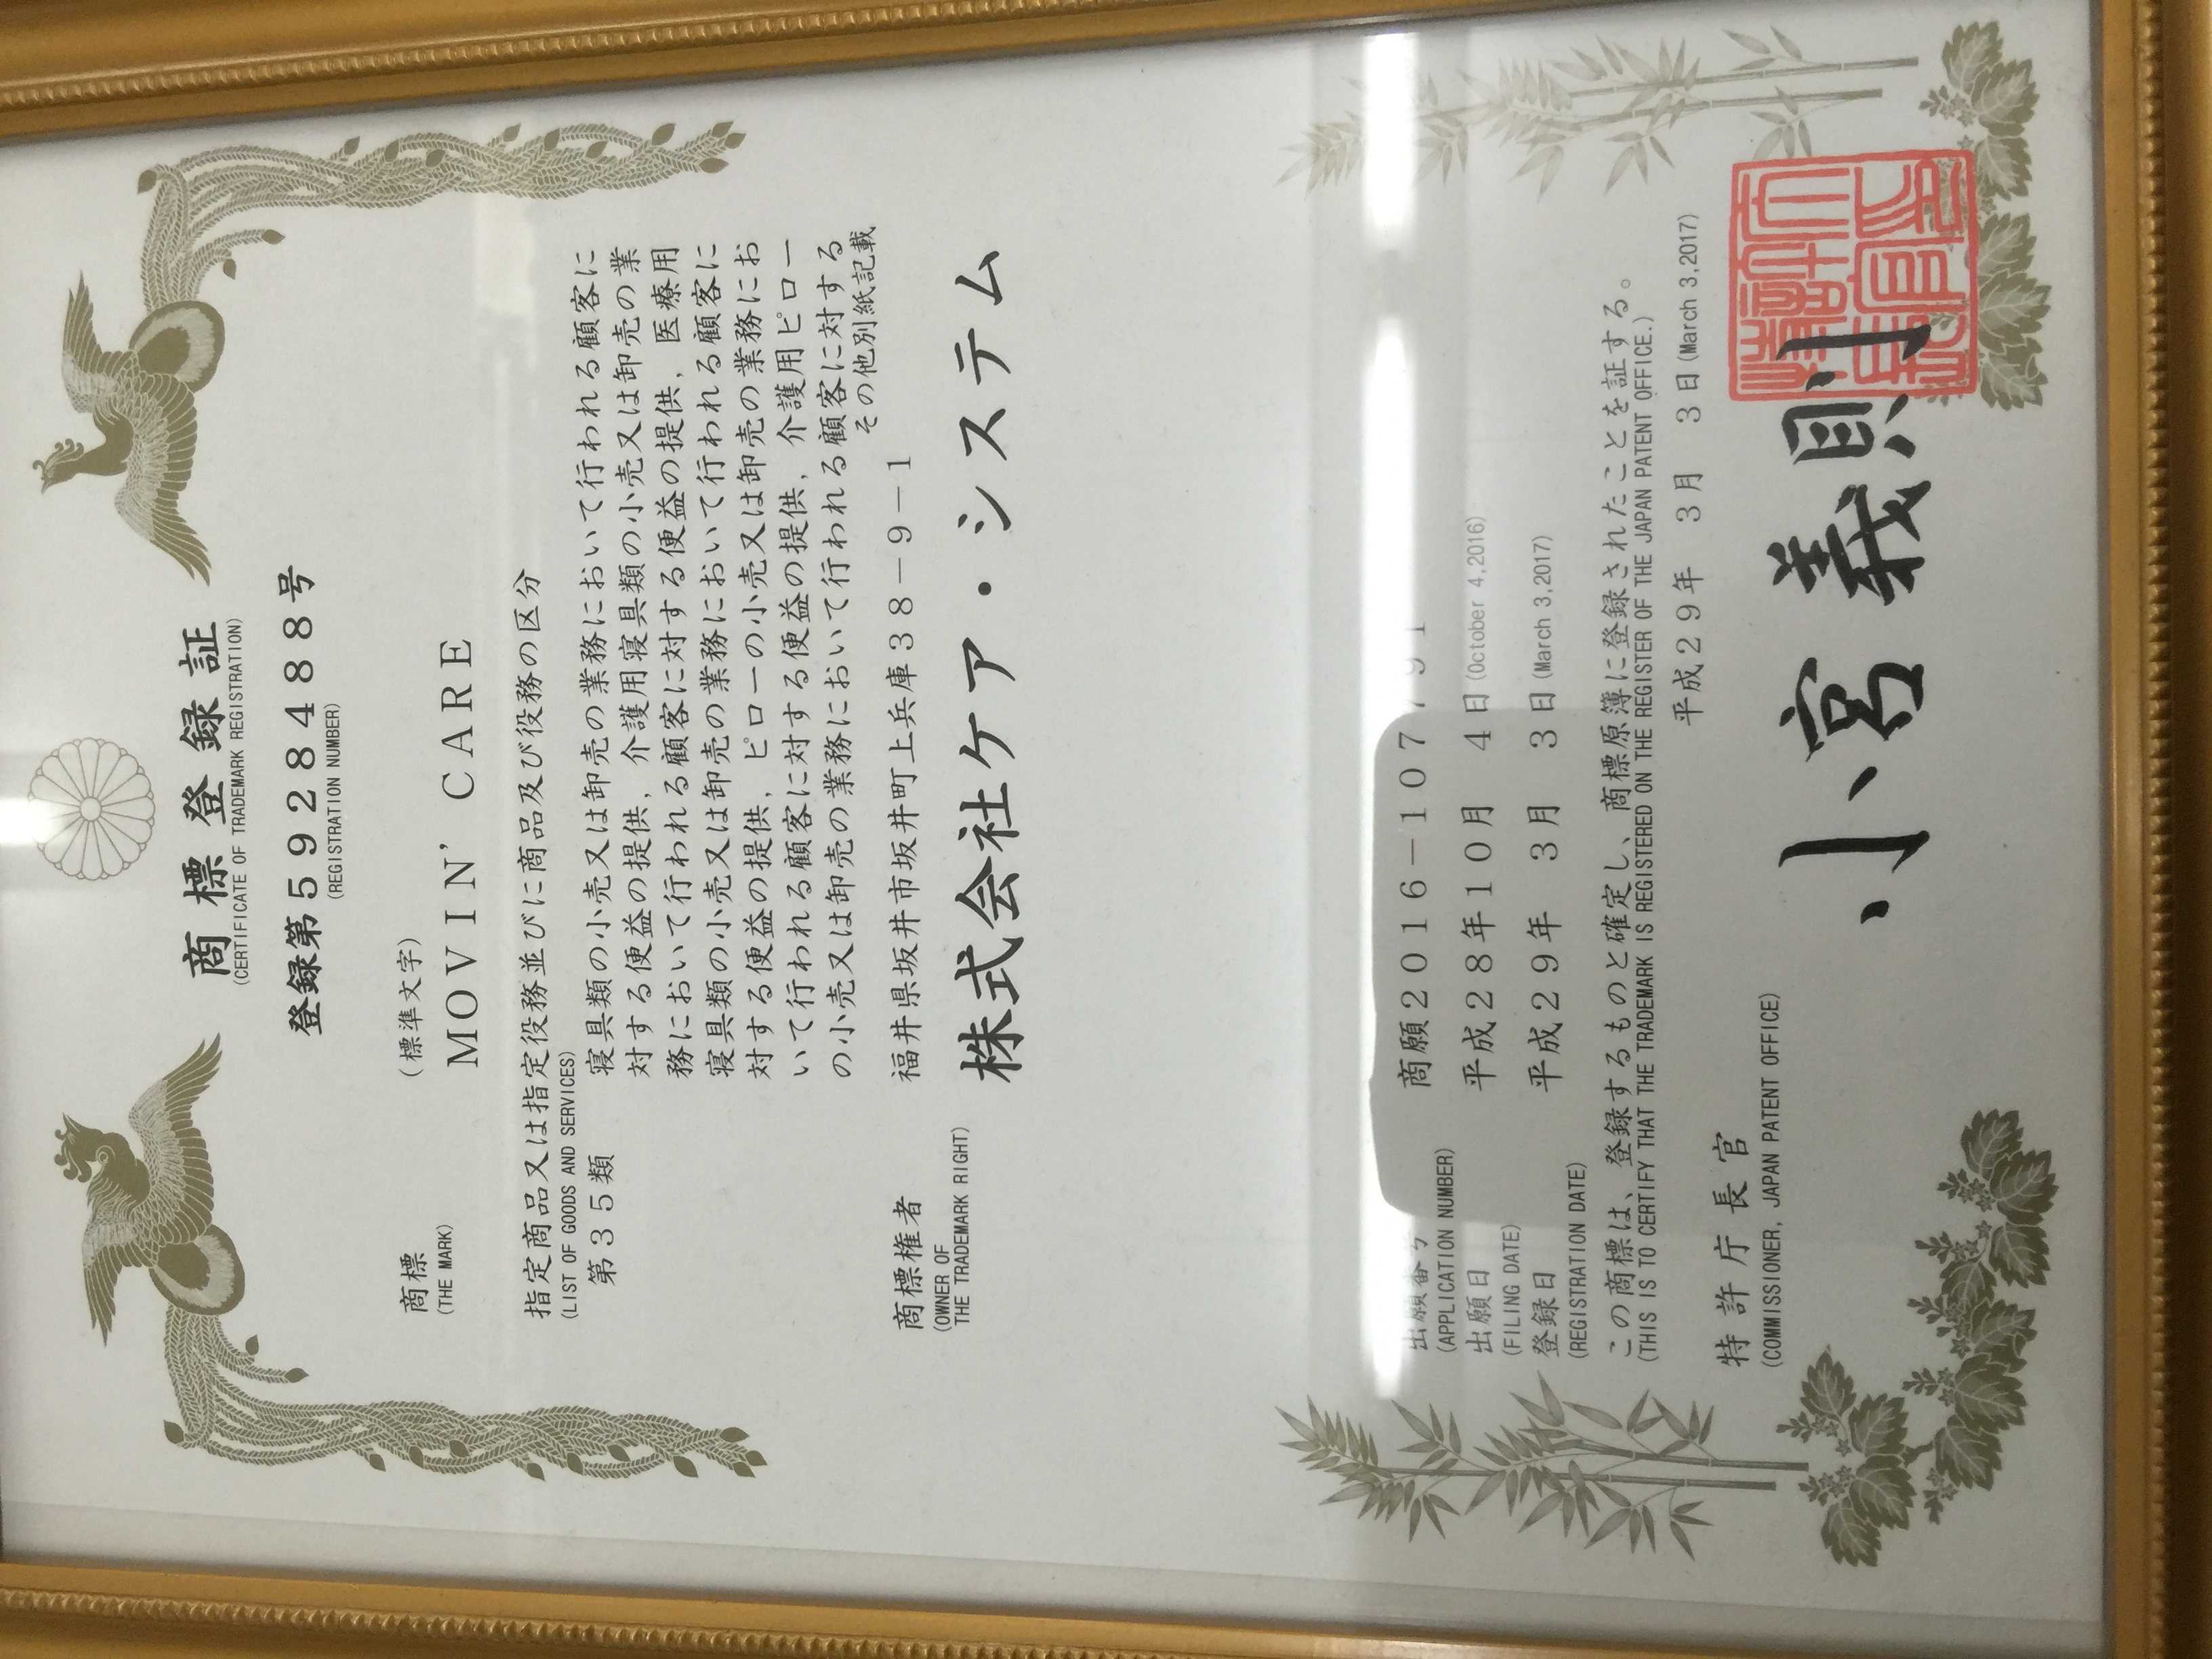 商標登録証
(CERTIFICATE OF TRADEMARK REGISTRATION)
登録第5928488号
(REGISTRATION NUMBER)
商標
(THE MARK)
(標準文字)
MOVIN' CARE
指定商品又は指定役務並びに商品及び役務の区分
(LIST OF GOODS AND SERVICES)
第35類
寝具類の小売又は卸売の業務において行われる顧客に
対する便益の提供,介護用寝具類の小売又は卸売の業
務において行われる顧客に対する便益の提供,医療用
寝具類の小売又は卸売の業務において行われる顧客に
対する便益の提供,ピローの小売又は卸売の業務にお
いて行われる顧客に対する便益の提供,介護用ピロー
の小売又は卸売の業務において行われる顧客に対する
その他別紙記載
商標権者
(OWNER OF
THE TRADEMARK RIGHT)
福井県坂井市坂井町上兵庫38-9-1
株式会社ケア・システム
出願番号
(APPLICATION NUMBER)
商願2016-107791
出願日
(FILING DATE)
平成28年10月 4日(October 4,2016)
登録日
(REGISTRATION DATE)
平成29年 3月 3日(March 3,2017)
この商標は、登録するものと確定し、商標原簿に登録されたことを証する。
(THIS IS TO CERTIFY THAT THE TRADEMARK IS REGISTERED ON THE REGISTER OF THE JAPAN PATENT OFFICE.)
平成29年 3月 3日(March 3,2017)
特許庁長官
(COMMISSIONER, JAPAN PATENT OFFICE)
小宮義則